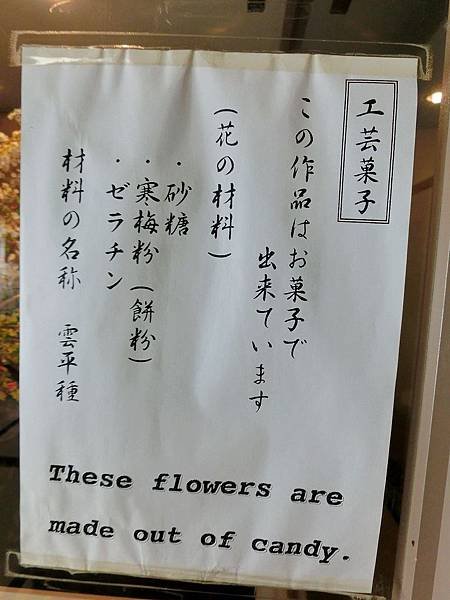 工芸菓子
この作品はお菓子で
出来ています
(花の材料)
・砂糖
・寒梅粉(餅粉)
・ゼラチン
材料の名称 雲平種
These flowers are
made out of candy.